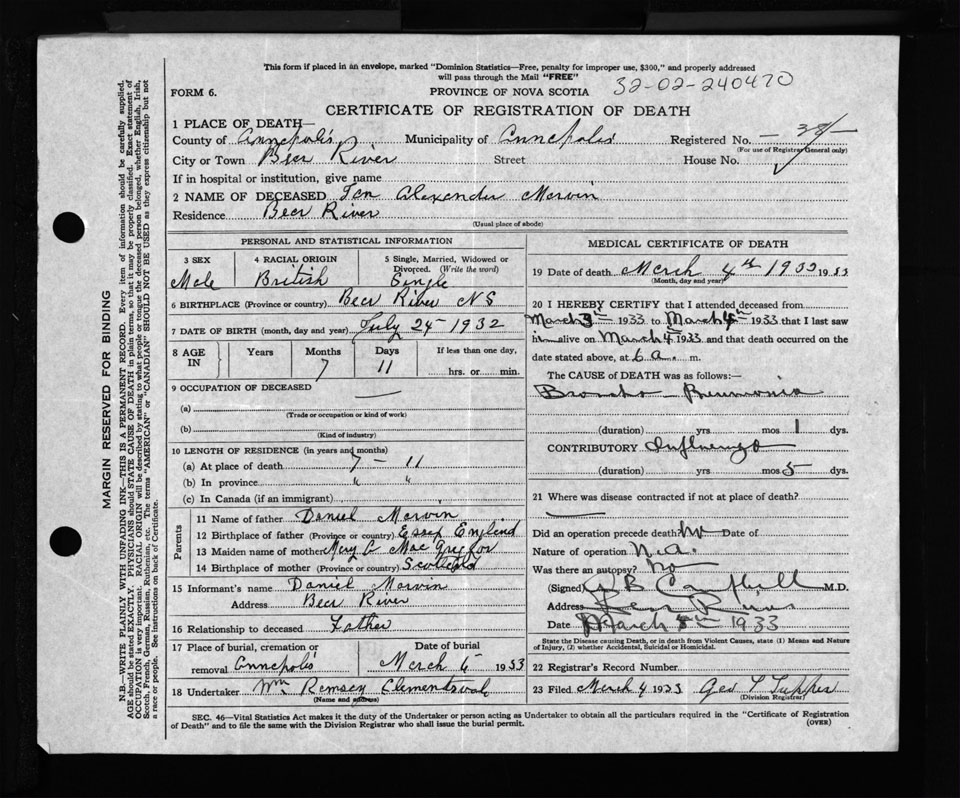 This form if placed in an envelope, marked "Dominion Statistics—Free, penalty for improper use, $300," and properly addressed
will pass through the Mail "FREE"
32-02-240470
FORM 6.
PROVINCE OF NOVA SCOTIA
CERTIFICATE OF REGISTRATION OF DEATH
1 PLACE OF DEATH—
County of Annapolis Municipality of Annapolis Registered No.
(For use of Registrar General only)
City or Town Bear River Street House No.
If in hospital or institution, give name
2 NAME OF DECEASED Ian Alexander Marvin
Residence Bear River
(Usual place of abode)
PERSONAL AND STATISTICAL INFORMATION
3 SEX 4 RACIAL ORIGIN 5 Single, Married, Widowed or
Divorced. (Write the word)
Male British Single
6 BIRTHPLACE (Province or country) Bear River NS
7 DATE OF BIRTH (month, day and year) July 24 1932
8 AGE IN Years Months Days If less than one day,
7 11 hrs. or min.
9 OCCUPATION OF DECEASED
(a)
(Trade or occupation or kind of work)
(b)
(Kind of industry)
10 LENGTH OF RESIDENCE (in years and months)
(a) At place of death 7 — 11
(b) In province " "
(c) In Canada (if an immigrant)
Parents
11 Name of father Daniel Marvin
12 Birthplace of father (Province or country) Essex England
13 Maiden name of mother Mary C MacGregor
14 Birthplace of mother (Province or country) Scotland
15 Informant's name Daniel Marvin
Address Bear River
16 Relationship to deceased Father
17 Place of burial, cremation or Date of burial
removal Annapolis March 6 1933
18 Undertaker Wm Ramsey Clementsvale
(Name and address)
MEDICAL CERTIFICATE OF DEATH
19 Date of death March 4th 1933 1933
(Month, day and year)
20 I HEREBY CERTIFY that I attended deceased from
March 3th 1933 to March 4th 1933 that I last saw
him alive on March 4 1933 and that death occurred on the
date stated above, at 6 a. m.
The CAUSE of DEATH was as follows:—
Broncho Pneumonia
(duration) yrs mos 1 dys.
CONTRIBUTORY Influenza
(duration) yrs mos 5 dys.
21 Where was disease contracted if not at place of death?
Did an operation precede death? No Date of
Nature of operation N.a.
Was there an autopsy? No
(Signed) B Campbell M.D.
Address Bear River
Date March 1933
State the Disease causing Death, or in death from Violent Causes, state (1) Means and Nature
of Injury, (2) whether Accidental, Suicidal or Homicidal.
22 Registrar's Record Number
23 Filed March 4 1933 Geo T Tupper
(Division Registrar)
SEC. 46—Vital Statistics Act makes it the duty of the Undertaker or person acting as Undertaker to obtain all the particulars required in the "Certificate of Registration
of Death" and to file the same with the Division Registrar who shall issue the burial permit.
(OVER)
MARGIN RESERVED FOR BINDING
N.B.—WRITE PLAINLY WITH UNFADING INK—THIS IS A PERMANENT RECORD. Every item of information should be carefully supplied.
AGE should be stated EXACTLY. PHYSICIANS should STATE CAUSE OF DEATH in plain terms, so that it may be properly classified. Exact statement of
OCCUPATION is very important. RACIAL ORIGIN will be described by stating to what people or tongue the deceased person belonged, whether English, Irish,
Scotch, French, German, Russian, Ruthenian, etc. The terms "AMERICAN" or "CANADIAN" SHOULD NOT BE USED as they express citizenship but not
a race or people. See instructions on back of Certificate.